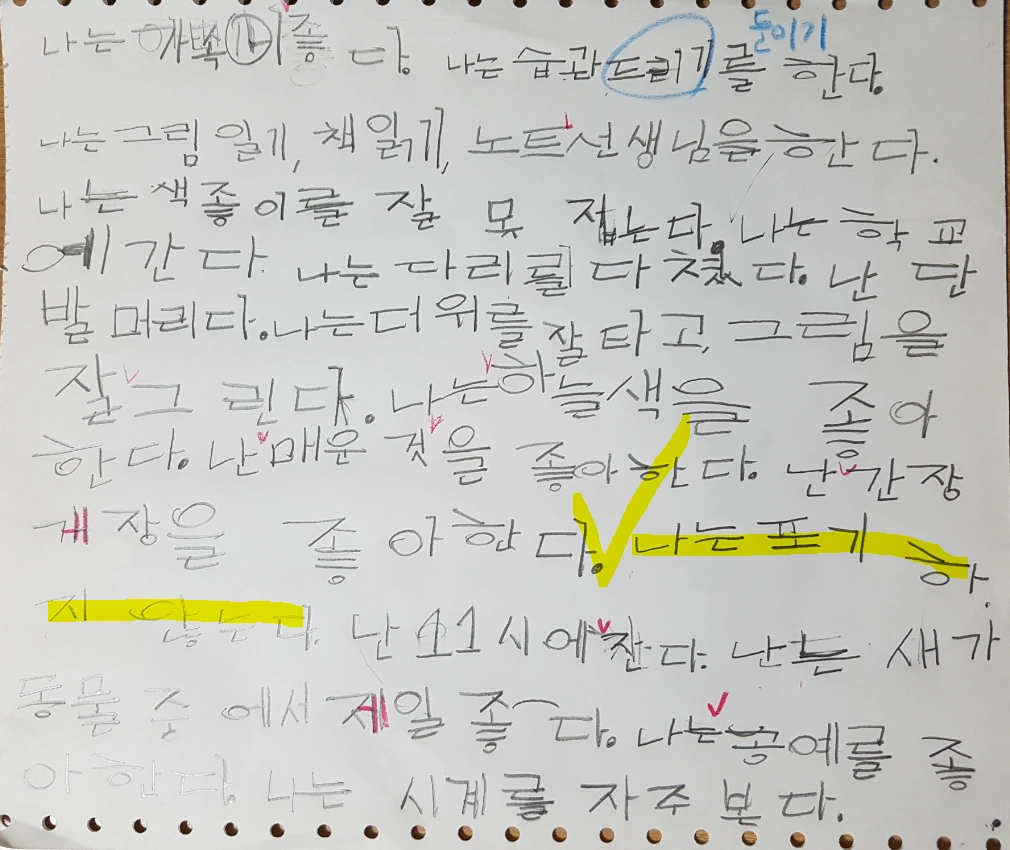 나는 가족이 좋다. 나는 습관 드리기를 한다. 들이기
나는 그림 일기, 책 일기, 노트선생님을 한다.
나는 색종이를 잘 못 접는다. 나는 학교
에 간다. 나는 다리를 다쳤다. 난 단
발 머리다. 나는 더위를 잘 타고, 그림을
잘그린다. 나는하늘색을 좋아
한다. 난매운 것을 좋아한다. 난간장
게장을 좋아한다. 나는 포기 하
지 않는다. 난 11시에잔다. 난 새가
동물 중에서 제일 좋다. 나는공예를 좋
아한다. 나는 시계를 자주 본다.